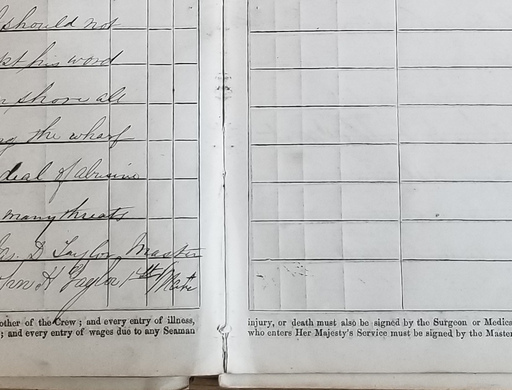 should not
pt his word
n shore all
ng the wharf
deal of abusive
many threats
Jas. D Taylor Master
ohn H Taylor 1st Mate
other of the Crew; and every entry of illness,
; and every entry of wages due to any Seaman
injury, or death must also be signed by the Surgeon or Medica
who enters Her Majesty's Service must be signed by the Master